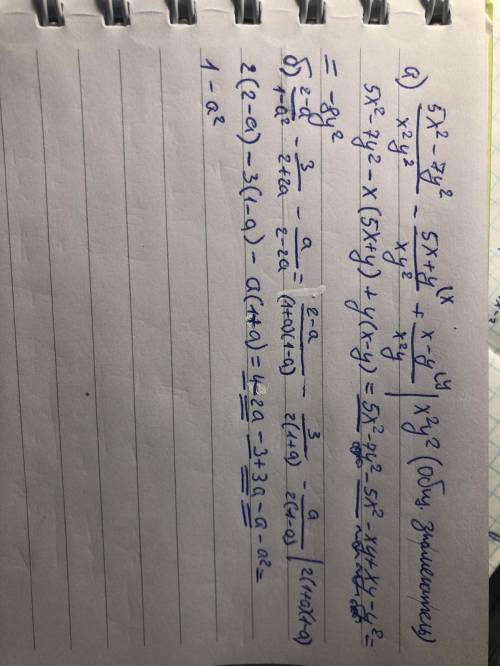 а) (5x² - 7y²)/(x²y²) - (5x+y)/(xy²) (x + (x-y)/(x²y) (y | x²y² (общ. знаменатель)
5x² - 7y² - x(5x+y) + y(x-y) = 5x² - 7y² - 5x² - xy + xy - y² =
= -8y²
б) (2-a)/(1-a²) - 3/(2+2a) - a/(2-2a) = (2-a)/((1+a)(1-a)) - 3/(2(1+a)) - a/(2(1-a)) | 2(1+a)(1-a)
2(2-a) - 3(1-a) - a(1+a) = 4 - 2a - 3 + 3a - a - a² =
1 - a²